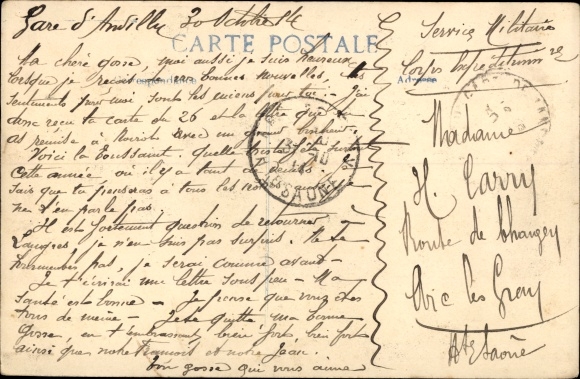 Gare d'Andilly 30 Octobre 14
CARTE POSTALE
Ma chère gosse, moi aussi je suis heureux
lorsque je reçois en bonnes nouvelles, tes
Correspondance
sentiments pour moi sont les miens pour toi. J'ai
donc reçu ta carte du 26 et la lettre que
as remise à avec un grand bonheur.
Voici la Toussaint. Quelle triste fête surtout
cette année où il y a tant de
sais que tu penseras à tous les nôtres
n'en parle pas.
Il est fortement question de retourner à
Langres je n'en suis pas surpris. Ne te
tourmentes pas, je serai comme avant -
Je t'écrirai une lettre sous peu - Ma
santé est bonne - Je pense que vous êtes
tous de même - Je te quitte ma bonne
gosse, en t'embrassant, bien fort, bien fort
ainsi que notre François et notre Jean.
Ton gosse qui vous aime
Service Militaire
Corps
Adresse
Madame
H. Carry
Route de Chargey
Arc les Gray
Hte Saône